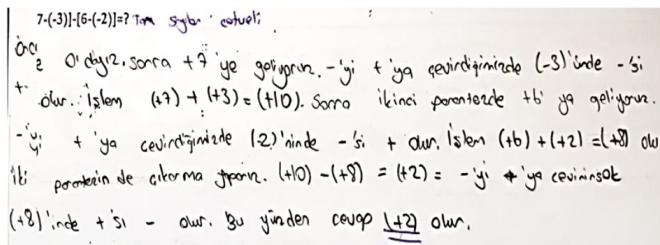 7-(-3)]-[6-(-2)]=? Tam sayılar cetveli
Önce 0'dayız, sonra +7'ye geliyoruz. -'yi +'ya çevirdiğimizde (-3)'ünde -'si
+ olur. İşlem (+7) + (+3) = (+10). Sonra ikinci parantezde +6'ya geliyoruz.
-'yi +'ya çevirdiğimizde (-2)'ninde -'si + olur. İşlem (+6) + (+2) = (+8) olu
iki parantezin de çıkarma yaparız. (+10) - (+8) = (+2) = -'yi +'ya çevirirsek
(+8)'inde +'sı - olur. Bu yüzden cevap (+2) olur.